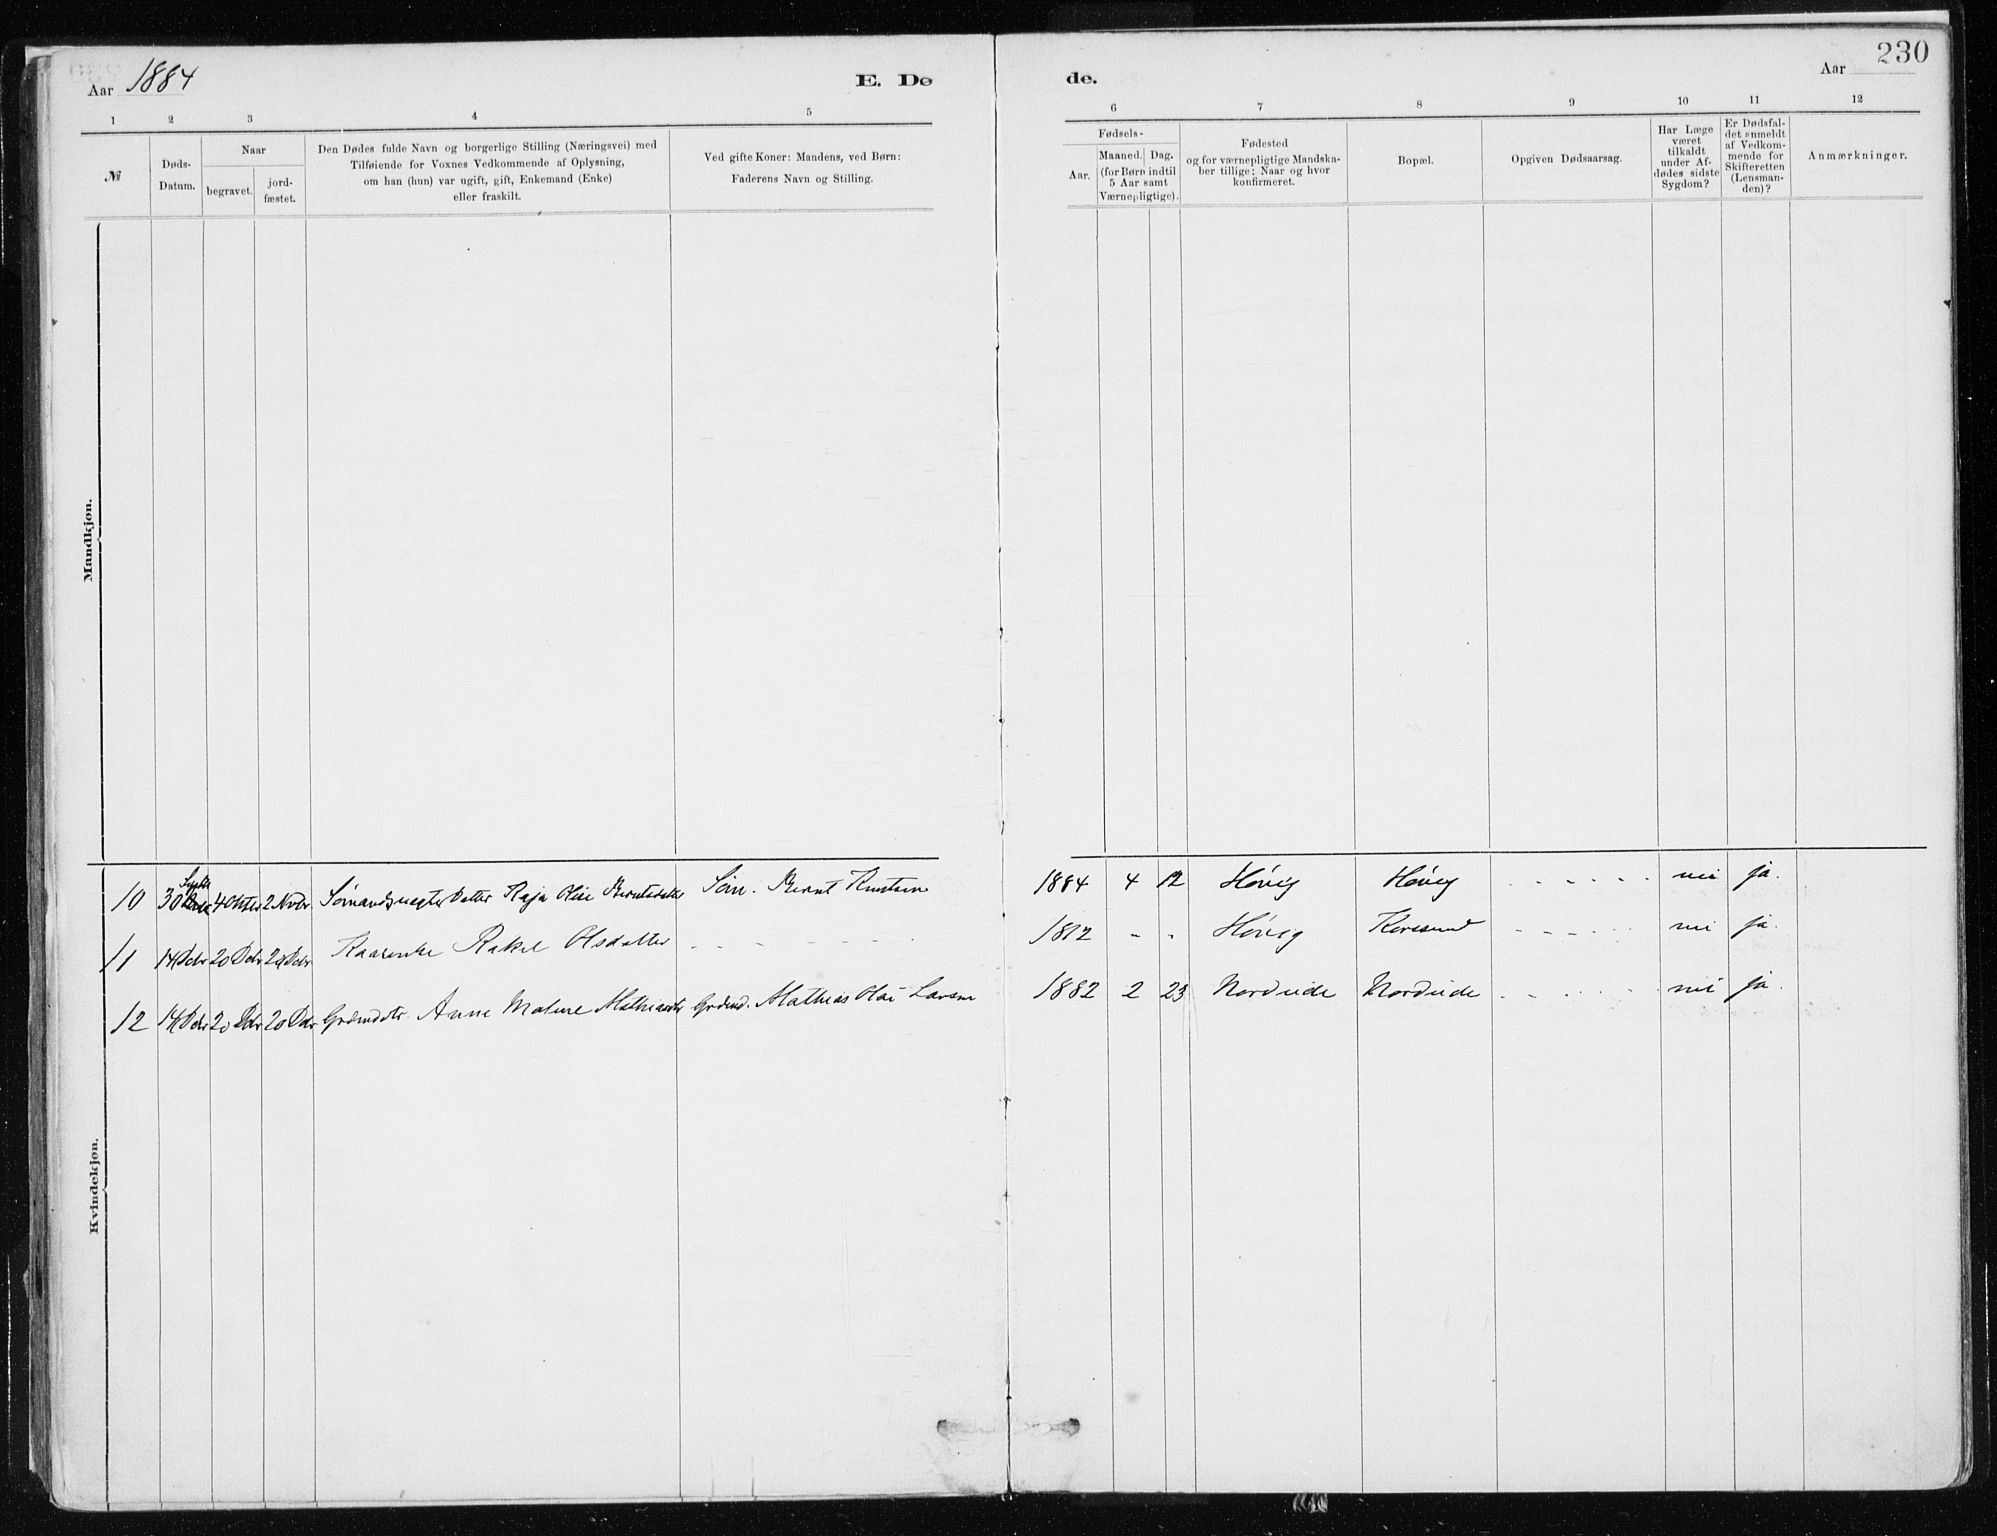 Aar 1884
E. Dø
de.
Aar
230
1 2 3 4 5
6 7 8 9 10 11 12
№
Døds-
Datum.
Naar
begravet.
jord-
fæstet.
Den Dødes fulde Navn og borgerlige Stilling (Næringsvei) med
Tilføiende for Voxnes Vedkommende af Oplysning,
om han (hun) var ugift, gift, Enkemand (Enke)
eller fraskilt.
Ved gifte Koner: Mandens, ved Børn:
Faderens Navn og Stilling.
Fødsels-
Aar.
Maaned. Dag.
(for Børn indtil
5 Aar samt
Værnepligtige).
Fødested
og for værnepligtige Mandska-
ber tillige: Naar og hvor
konfirmeret.
Bopæl.
Opgiven Dødsaarsag.
Har Læge
været
tilkaldt
under Af-
dødes sidste
Sygdom?
Er Dødsfal-
det anmeldt
af Vedkom-
mende for
Skifteretten
(Lensman-
den)?
Anmærkninger.
Mandkjøn.
Kvindekjøn.
10 30 4 Okter 2 Nvbr. Datter Kaja Bernt Knutsen 1884 4 12 Høvig Høvig - - - - - - nei ja.
11 14 Dcbr 20 Dcbr 20 Dcbr. Rakel Olsdatter - - - - - 1812 - - Høvig - - - - - - nei ja.
12 14 Dcbr 20 Dcbr 20 Dcbr Anne Mathias Larsen 1882 2 23 Nordeide Nordeide - - - - - nei ja.